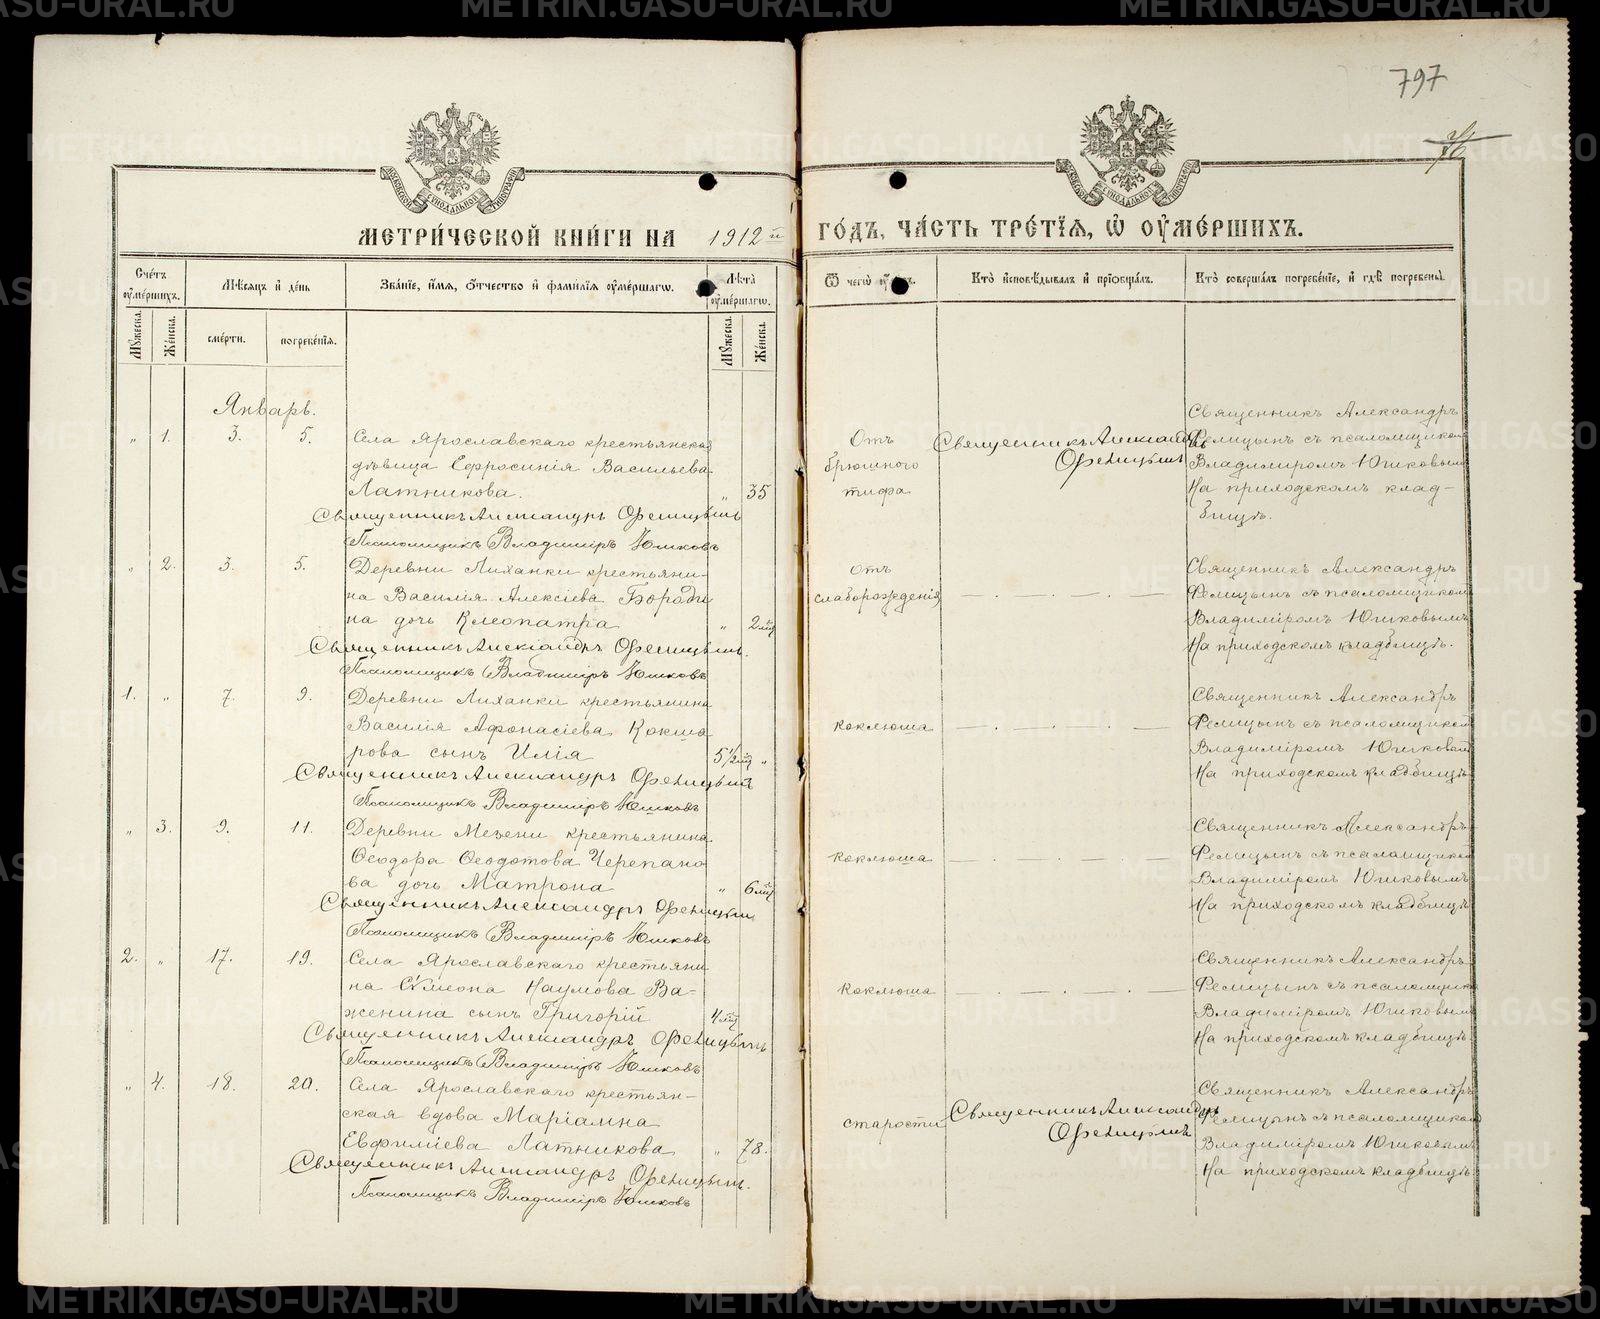 797
МЕТРИ́ЧЕСКОЙ КНИ́ГИ НА 1912й ГО́ДЪ, ЧА́СТЬ ТРЕ́ТІѦ, Ѡ ОУ҆МЕ́РШИХЪ.
Сче́тъ оумершихъ.
Мѣсяцъ и день
Зва́нїе, и҆́мѧ, ѻ҆́тчество и҆ фами́лїѧ оу҆ме́ршагѡ.
Лѣта оумершагѡ.
Ѿ чегѡ
Кто̀ и҆сповѣ́дывалъ и҆ прїѡбща́лъ.
Кто̀ соверша́лъ погребе́нїе, и҆ гдѣ̀ погребены̀.
Мужеска.
Женска.
смерти.
погребенїя.
Мужеска.
Женска.
Январь.
" 1. 3. 5. Села Ярославскаго крестьянская
дѣвица Ефросинія Васильева
Латникова. " 35
Священникъ Александръ Фелицынъ
Псаломщикъ Владиміръ Юшковъ
Отъ
брюшного
тифа
Священникъ Александръ
Фелицынъ
Священникъ Александръ
Фелицынъ съ псаломщикомъ
Владиміромъ Юшковымъ
На приходскомъ клад-
бищѣ.
" 2. 3. 5. Деревни Лиханки крестьяни-
на Василія Алексіева Бороди
на дочь Клеопатра " 2 мѣ
Священникъ Александръ Фелицынъ.
Псаломщикъ Владиміръ Юшковъ
Отъ
слаборожденія
— . — . —
Священникъ Александръ
Фелицынъ съ псаломщикомъ
Владиміромъ Юшковымъ
На приходскомъ кладбищѣ.
1. " 7. 9. Деревни Лиханки крестьянина
Василія Афонасіева Кокша
рова сынъ Илія 5½ мѣ "
Священникъ Александръ Фелицынъ
Псаломщикъ Владиміръ Юшковъ
Коклюша
— . — . —
Священникъ Александръ
Фелицынъ съ псаломщикомъ
Владиміромъ Юшковым
На приходскомъ кладбищѣ
" 3. 9. 11. Деревни Мезени крестьянина
Ѳеодора Ѳеодотова Черепано
ва дочь Матрона " 6 мѣ
Священникъ Александръ Фелицынъ
Псаломщикъ Владиміръ Юшковъ
Коклюша
— . — . —
Священникъ Александръ
Фелицынъ съ псаломщикомъ
Владиміромъ Юшковымъ
На приходскомъ кладбищѣ
2. " 17. 19. Села Ярославскаго крестьяни
на Сѵмеона Наумова Ва-
женина сынъ Григорій 4 мѣ
Священникъ Александръ Фелицынъ
Псаломщикъ Владиміръ Юшковъ
Коклюша
— . — . —
Священникъ Александръ
Фелицынъ съ псаломщико
Владиміромъ Юшковым
На приходскомъ кладбищѣ.
" 4. 18. 20. Села Ярославскаго крестьян-
ская вдова Маріамна
Евфиміева Латникова " 78.
Священникъ Александръ Фелицынъ.
Псаломщикъ Владиміръ Юшковъ
старости
Священникъ Александръ
Фелицынъ
Священникъ Александръ
Фелицынъ съ псаломщикомъ
Владиміромъ Юшковымъ
На приходскомъ кладбищѣ
METRIKI.GASO-URAL.RU